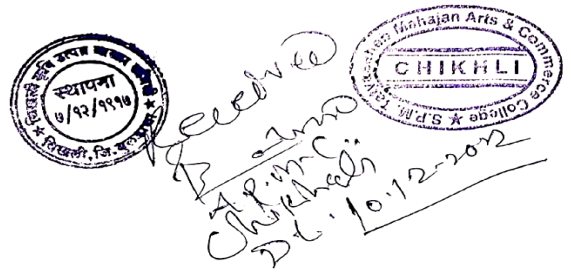 चिखली कृषि उत्पन्न बाजार समिती
स्थापना
७/१२/१९१७
★ चिखली, जि. बुलढाणा ★
S.P.M. Tatyasaheb Mahajan Arts & Commerce College ★
CHIKHLI
Received
A.P.M.C.
Chikhali
Dt. 10.12-2012